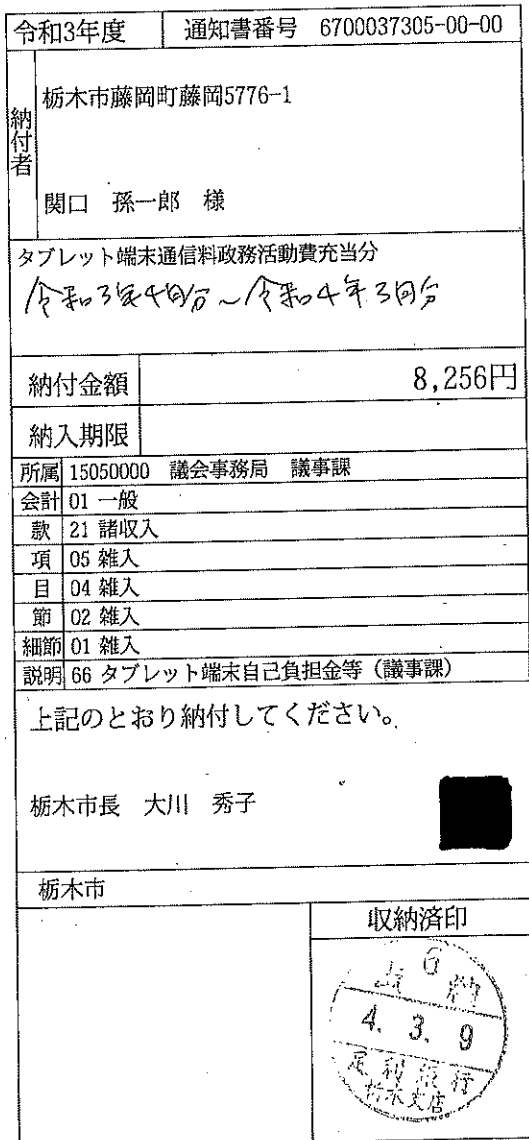 令和3年度 通知書番号 6700037305-00-00
納付者
栃木市藤岡町藤岡5776-1
関口 孫一郎 様
タブレット端末通信料政務活動費充当分
令和3年4月分～令和4年3月分
納付金額 8,256円
納入期限
所属 15050000 議会事務局 議事課
会計 01 一般
款 21 諸収入
項 05 雑入
目 04 雑入
節 02 雑入
細節 01 雑入
説明 66 タブレット端末自己負担金等（議事課）
上記のとおり納付してください。
栃木市長 大川 秀子
栃木市
収納済印
6
納
4. 3. 9
足利銀行
栃木支店